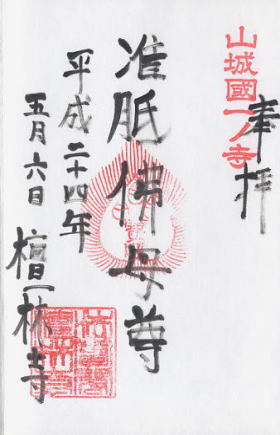 奉拝
山城國一ノ寺
准胝佛母尊
平成二十四年
五月六日
檀林寺